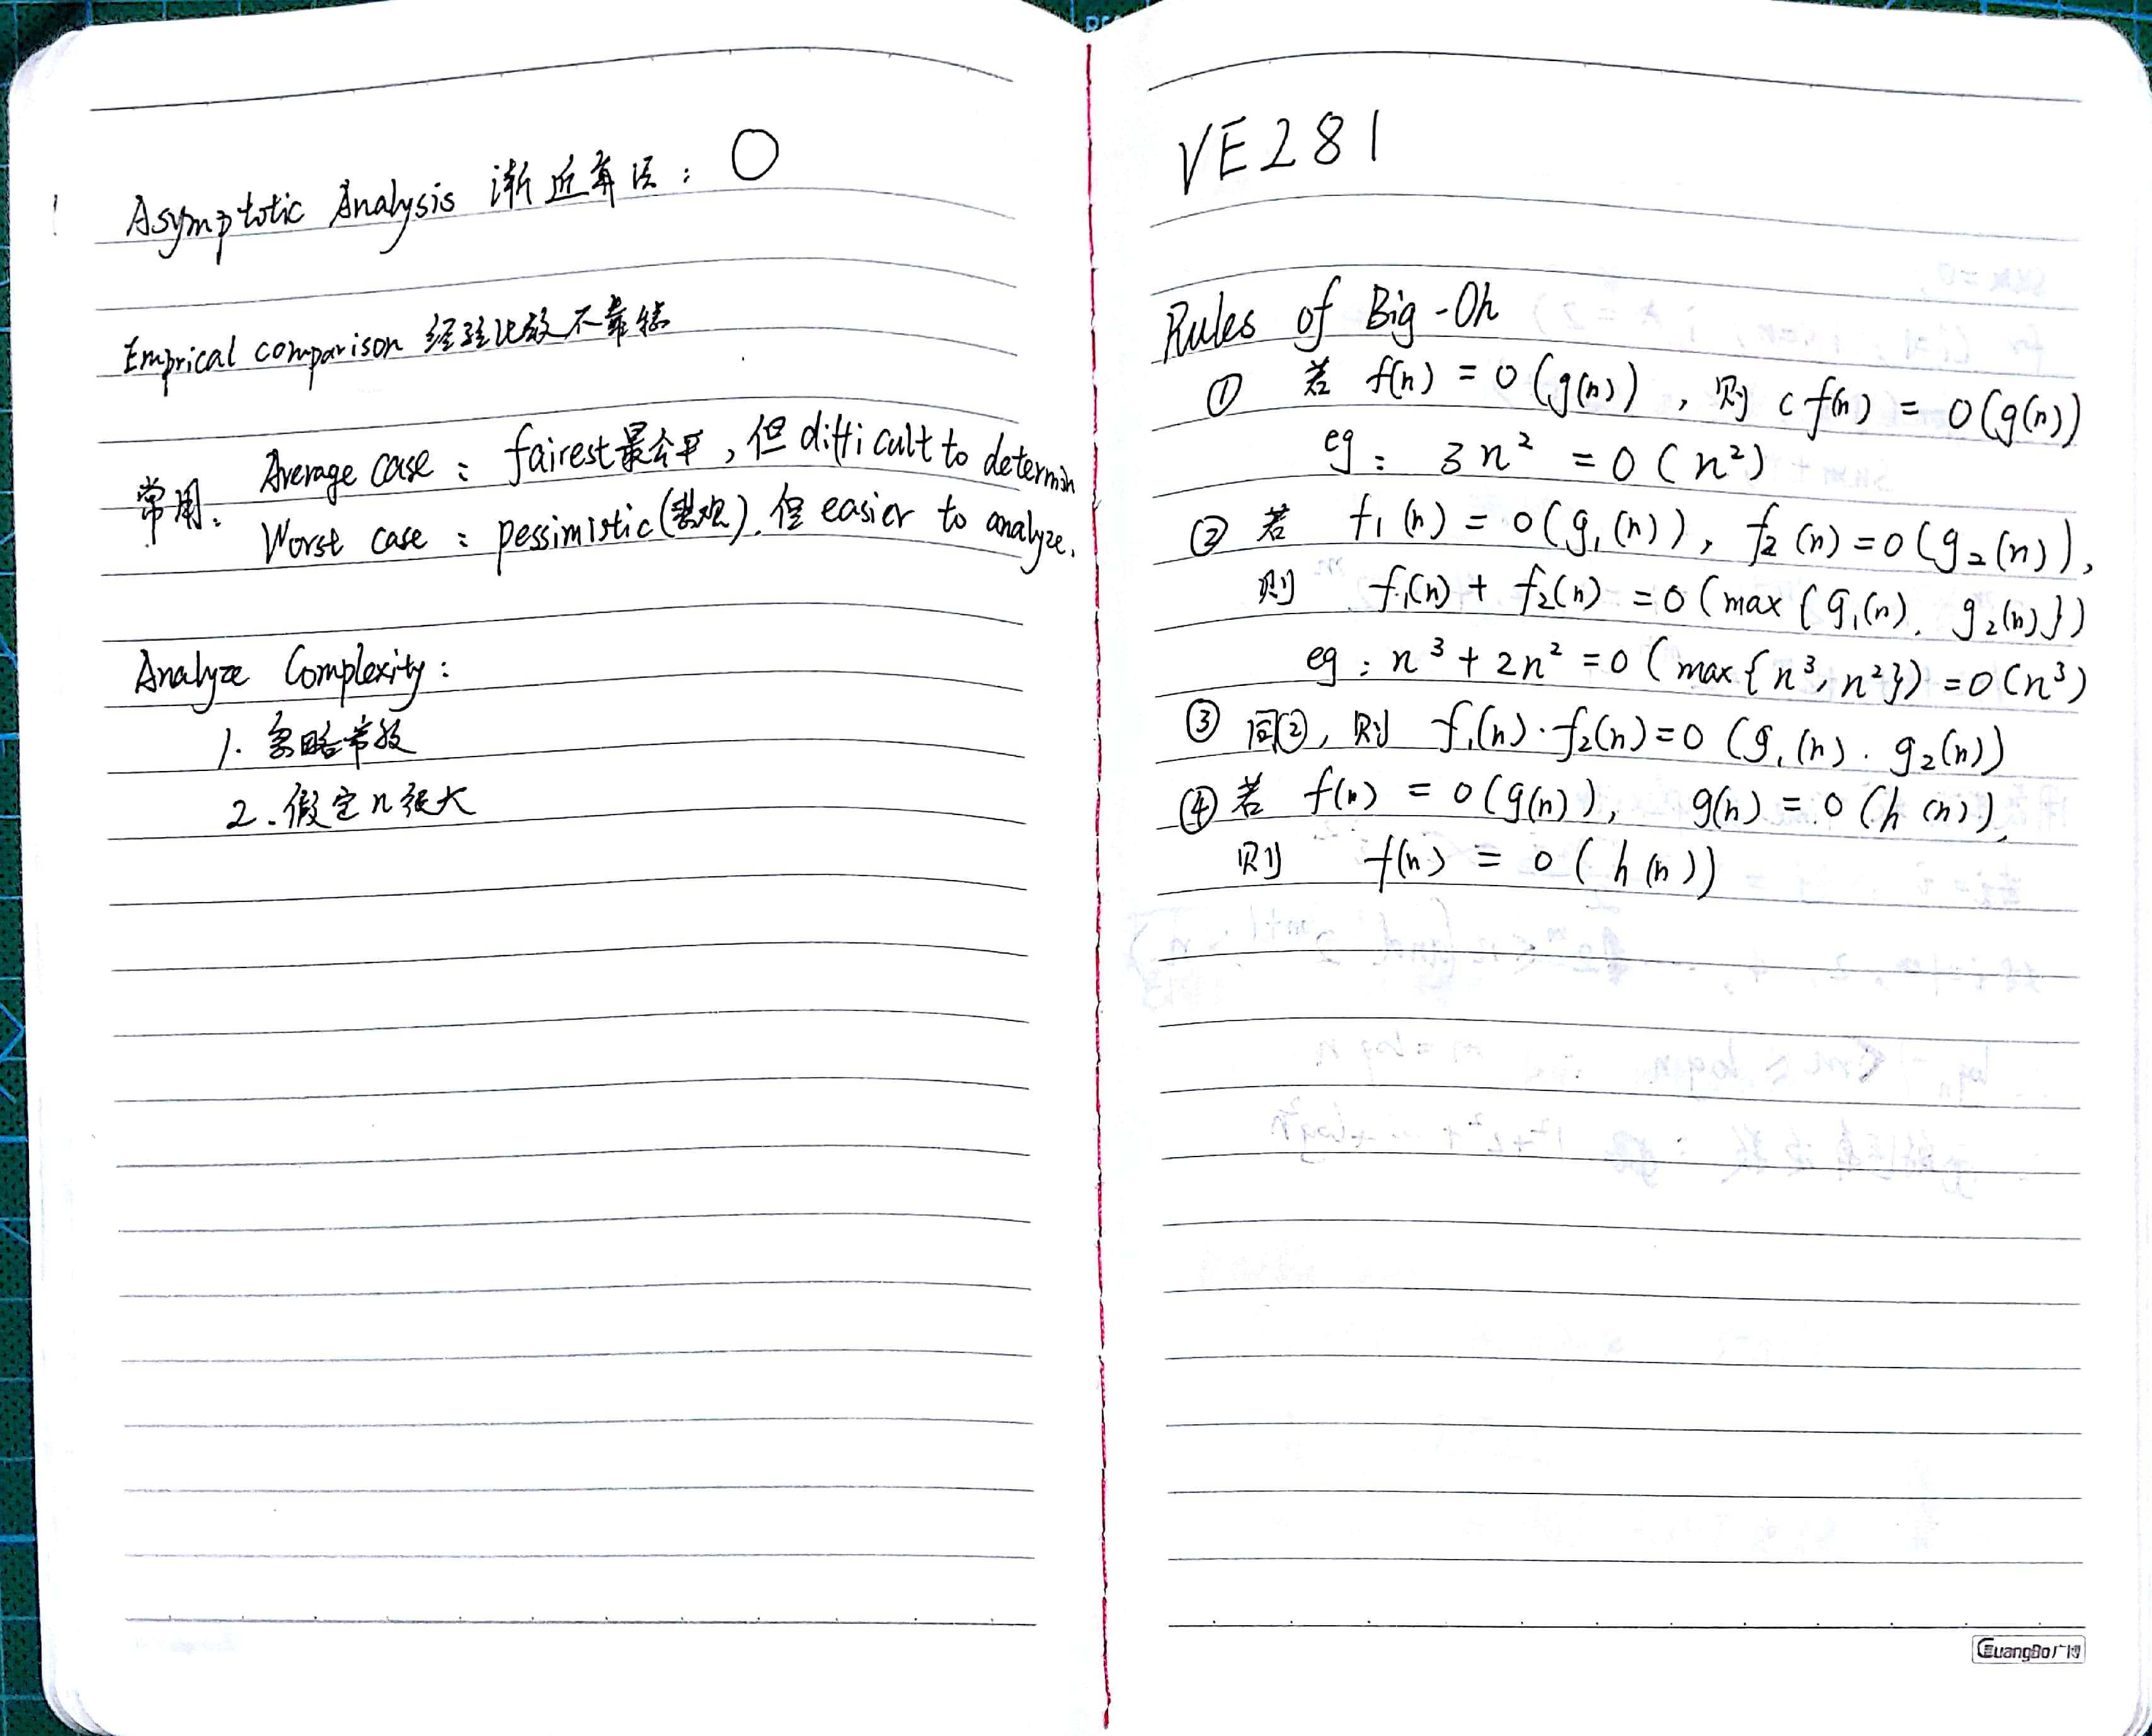 Asymptotic Analysis 渐近算法: O
Emprical comparison 经验比较不靠谱
常用:
Average case: fairest最公平, 但 difficult to determin
Worst case: pessimistic(悲观). 但 easier to analyze.
Analyze Complexity:
1. 忽略常数
2. 假定n很大
VE281
Rules of Big-Oh
① 若 f(n) = O(g(n)), 则 cf(n) = O(g(n))
eg: 3n² = O(n²)
② 若 f₁(n) = O(g₁(n)), f₂(n) = O(g₂(n)),
则 f₁(n) + f₂(n) = O(max{g₁(n), g₂(n)})
eg: n³ + 2n² = O(max{n³, n²}) = O(n³)
③ 同②, 则 f₁(n)·f₂(n) = O(g₁(n)·g₂(n))
④ 若 f(n) = O(g(n)), g(n) = O(h(n)),
则 f(n) = O(h(n))
GuangBo广博